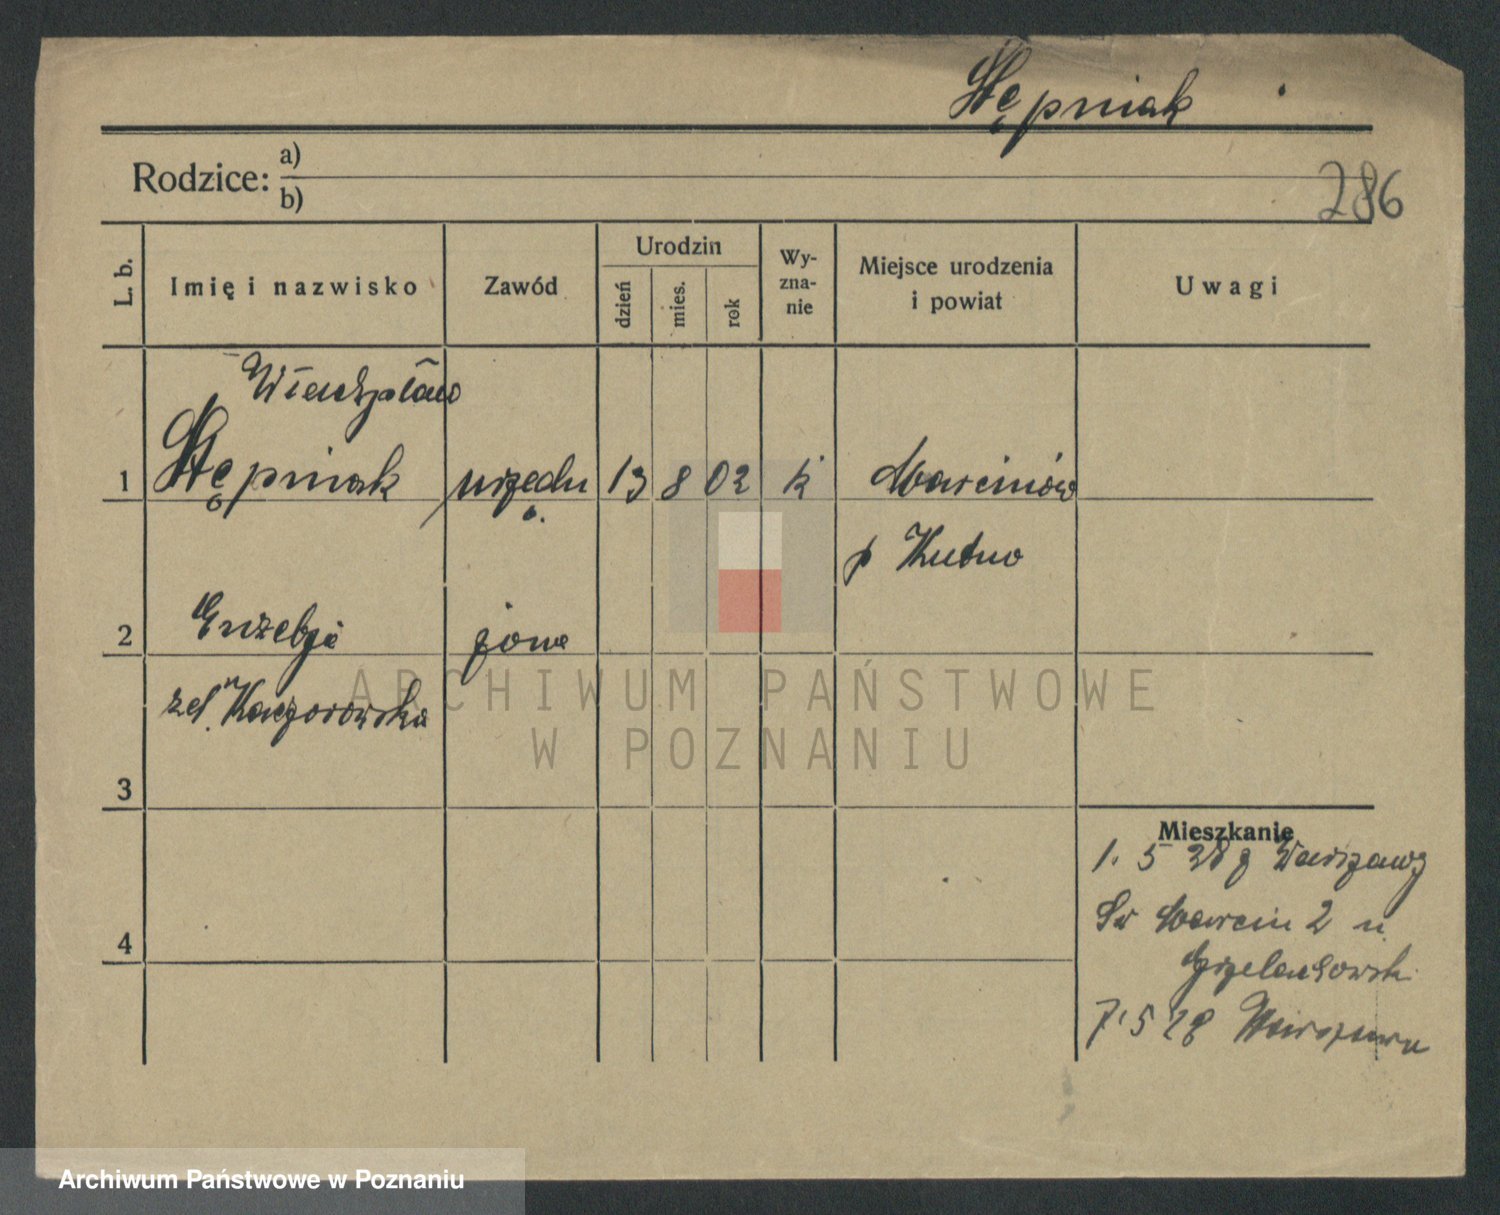 Stępniak
286
Rodzice: a)
b)
L. b.
Imię i nazwisko
Zawód
Urodzin
dzień
mies.
rok
Wy-
zna-
nie
Miejsce urodzenia
i powiat
Uwagi
1
Stępniak
urzędn
13
8
02
k
Marcinów
p Kutno
2
żona
Kaczorowska
3
4
Mieszkanie
1. 5 28 z Warszawy
Św Marcin 2 u
7. 5 28 Warszawa
ARCHIWUM PAŃSTWOWE
W POZNANIU
Archiwum Państwowe w Poznaniu